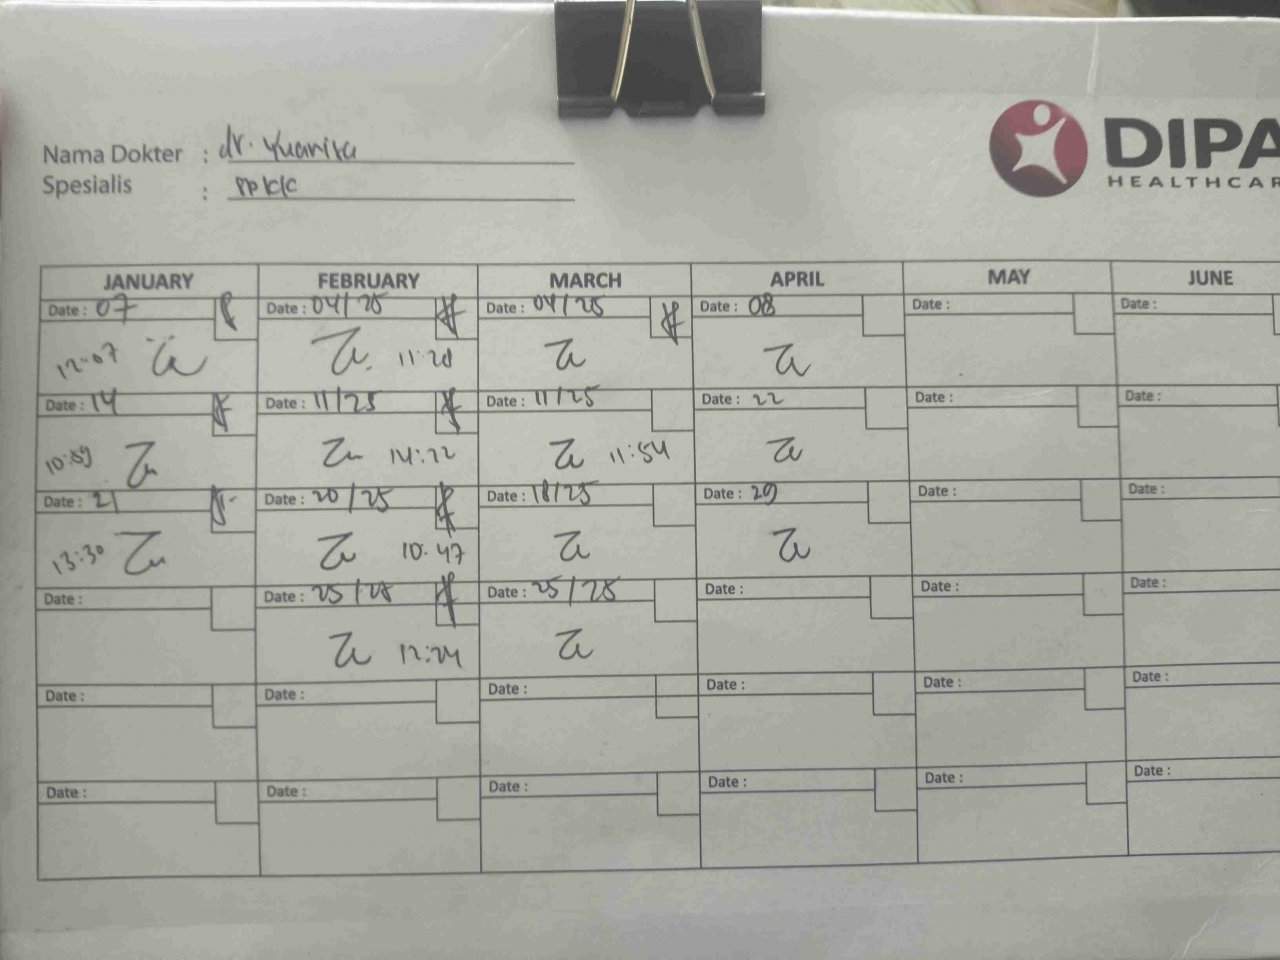 Nama Dokter : dr. Yuanita
Spesialis :
DIPA
HEALTHCAR
JANUARY FEBRUARY MARCH APRIL MAY JUNE
Date : 07 Date : 04/25 Date : 04/25 Date : 08 Date : Date :
12-07 11:20
Date : 14 Date : 11/25 Date : 11/25 Date : 22 Date : Date :
10:59 14:22 11:54
Date : 21 Date : 20/25 Date : 18/25 Date : 29 Date : Date :
13:30 10.47
Date : Date : 25/25 Date : 25/25 Date : Date : Date :
12:24
Date : Date : Date : Date : Date : Date :
Date : Date : Date : Date : Date : Date :